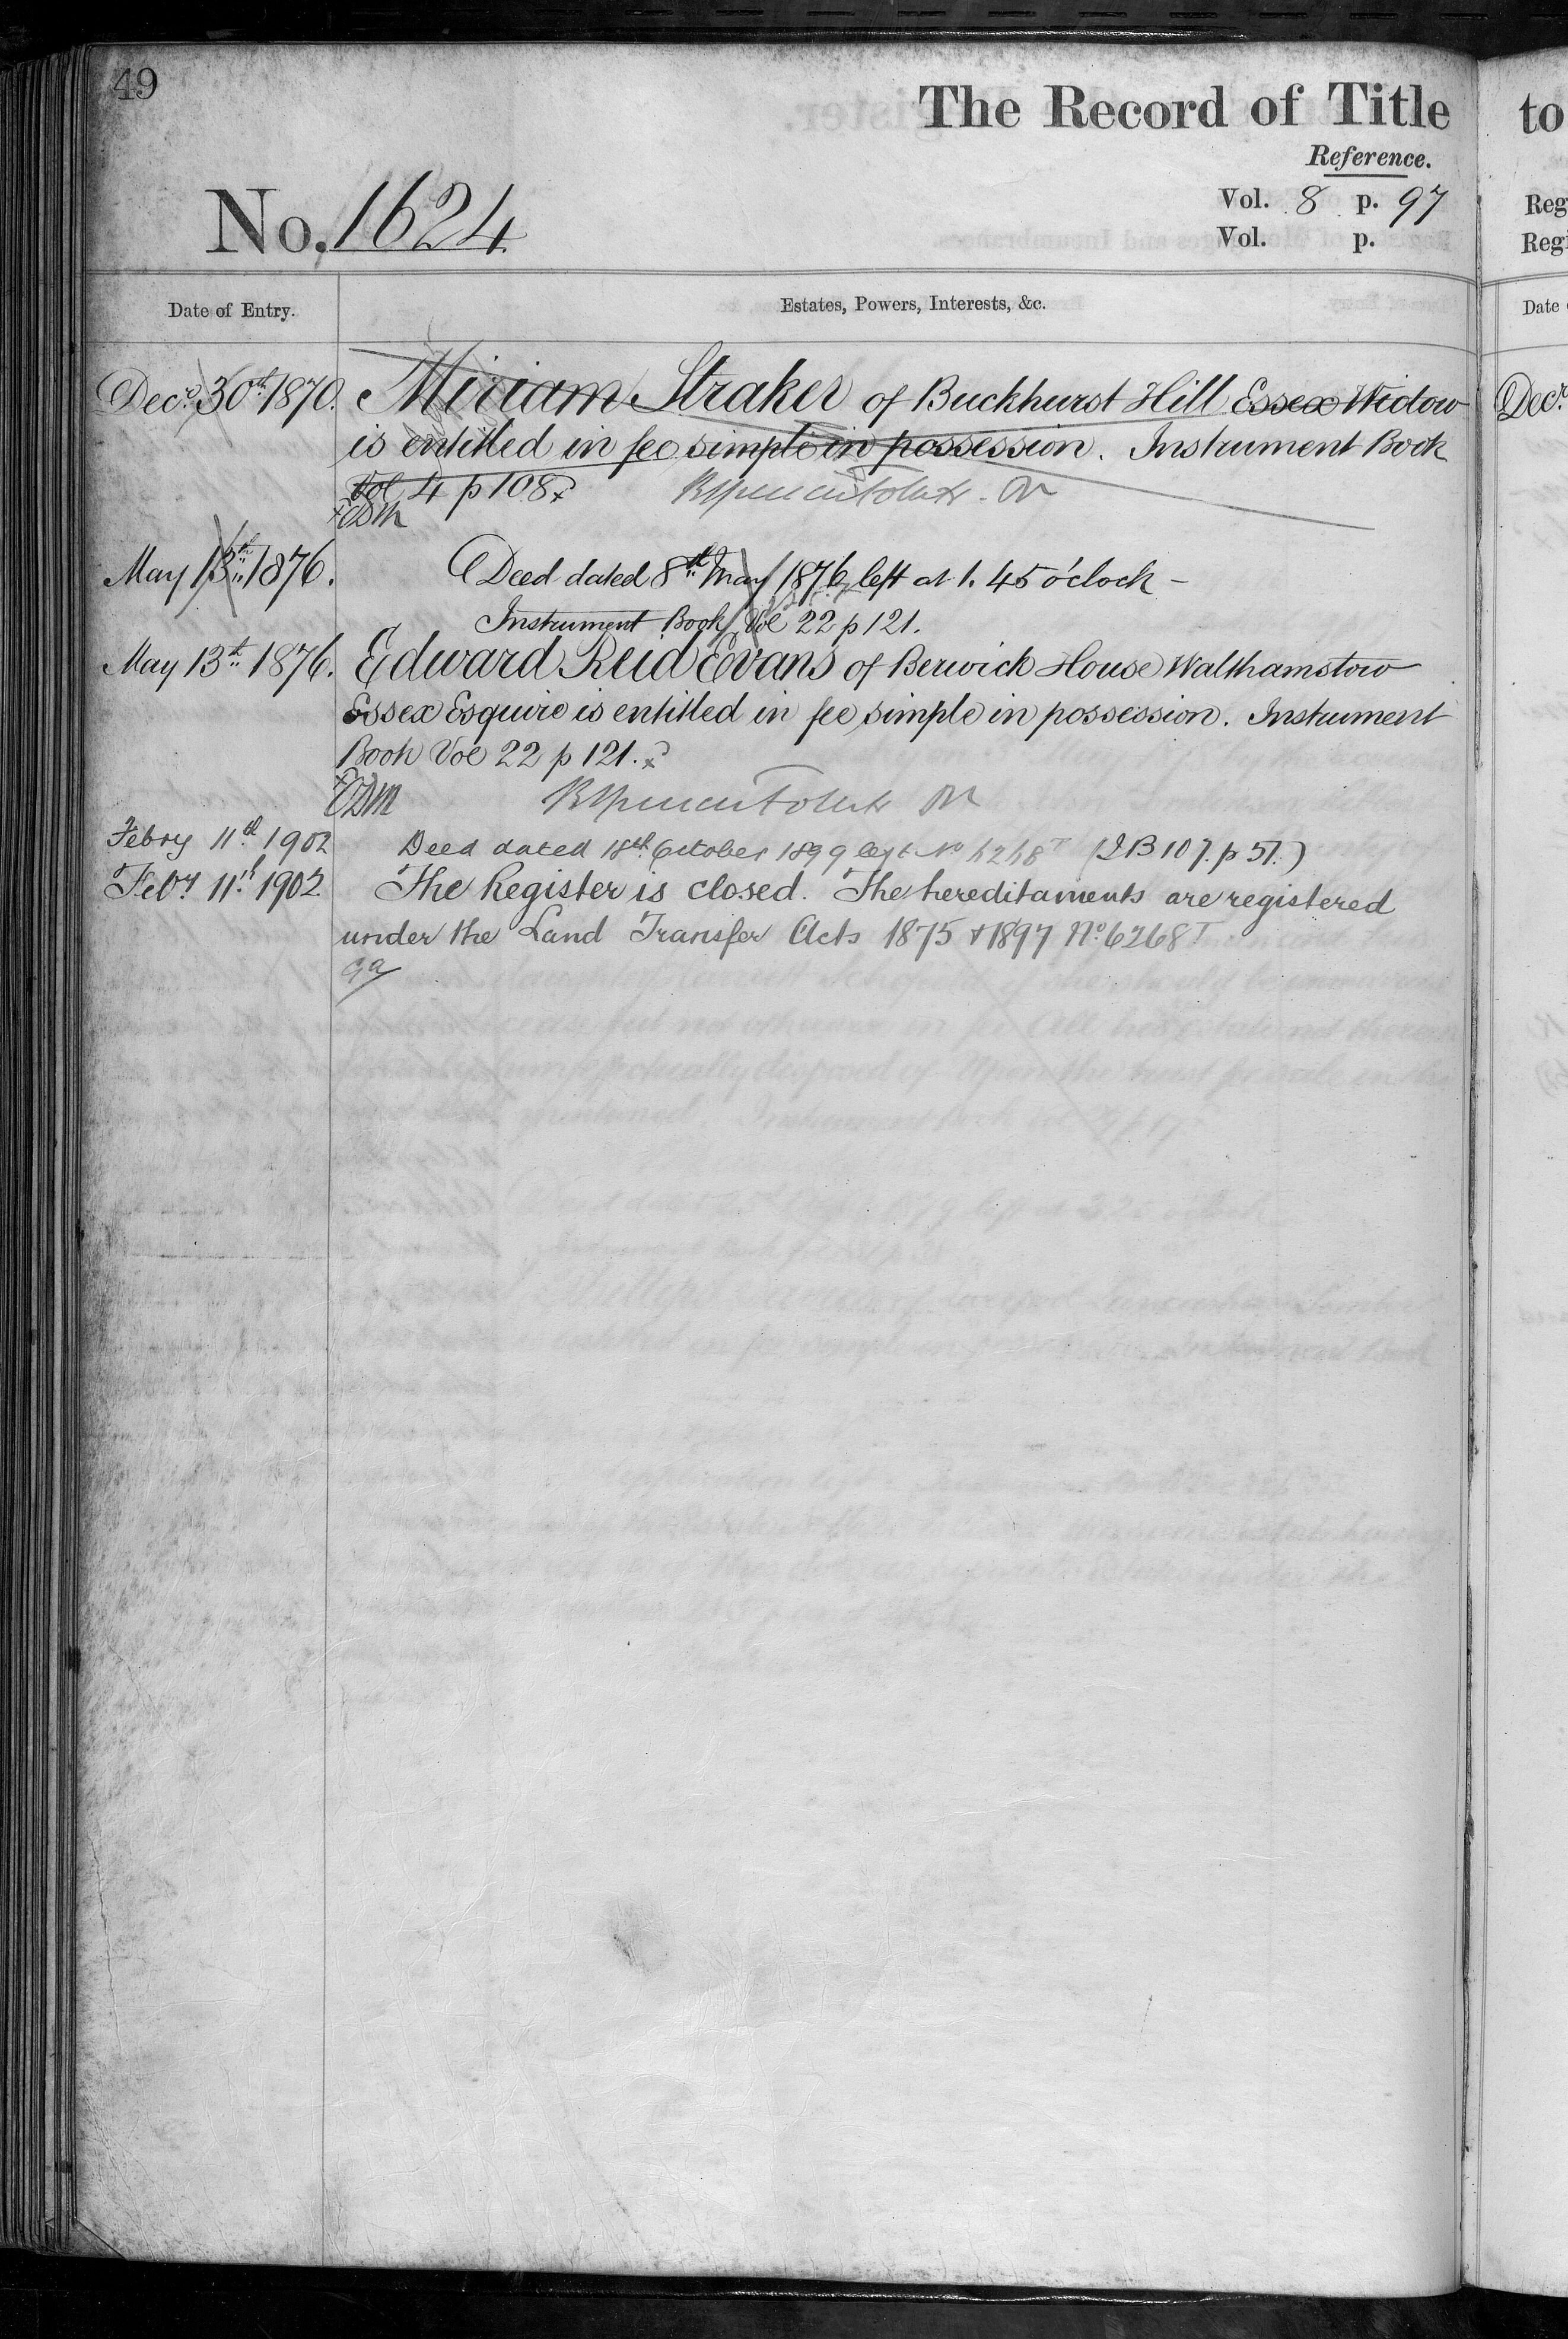 49
The Record of Title
to
Reference.
No. 1624
Vol. 8 p. 97
Vol. p.
Reg
Reg
Date of Entry.
Estates, Powers, Interests, &c.
Date
Decr. 30th 1870.
Miriam Straker of Buckhurst Hill Essex Widow
Decr
is entitled in fee simple in possession. Instrument Book
Vol 4 p 108
May 13th 1876.
Deed dated 8th May 1876 left at 1.45 o'clock -
Instrument Book Vol 22 p 121.
May 13th 1876.
Edward Reid Evans of Berwick House Walthamstow
Essex Esquire is entitled in fee simple in possession. Instrument
Book Vol 22 p 121.
Febry 11th 1902
Deed dated 18th October 1899 No 6268T (IB 107. p 57.)
Feby 11th 1902
The Register is closed. The hereditaments are registered
under the Land Transfer Acts 1875 & 1897 No. 6268T